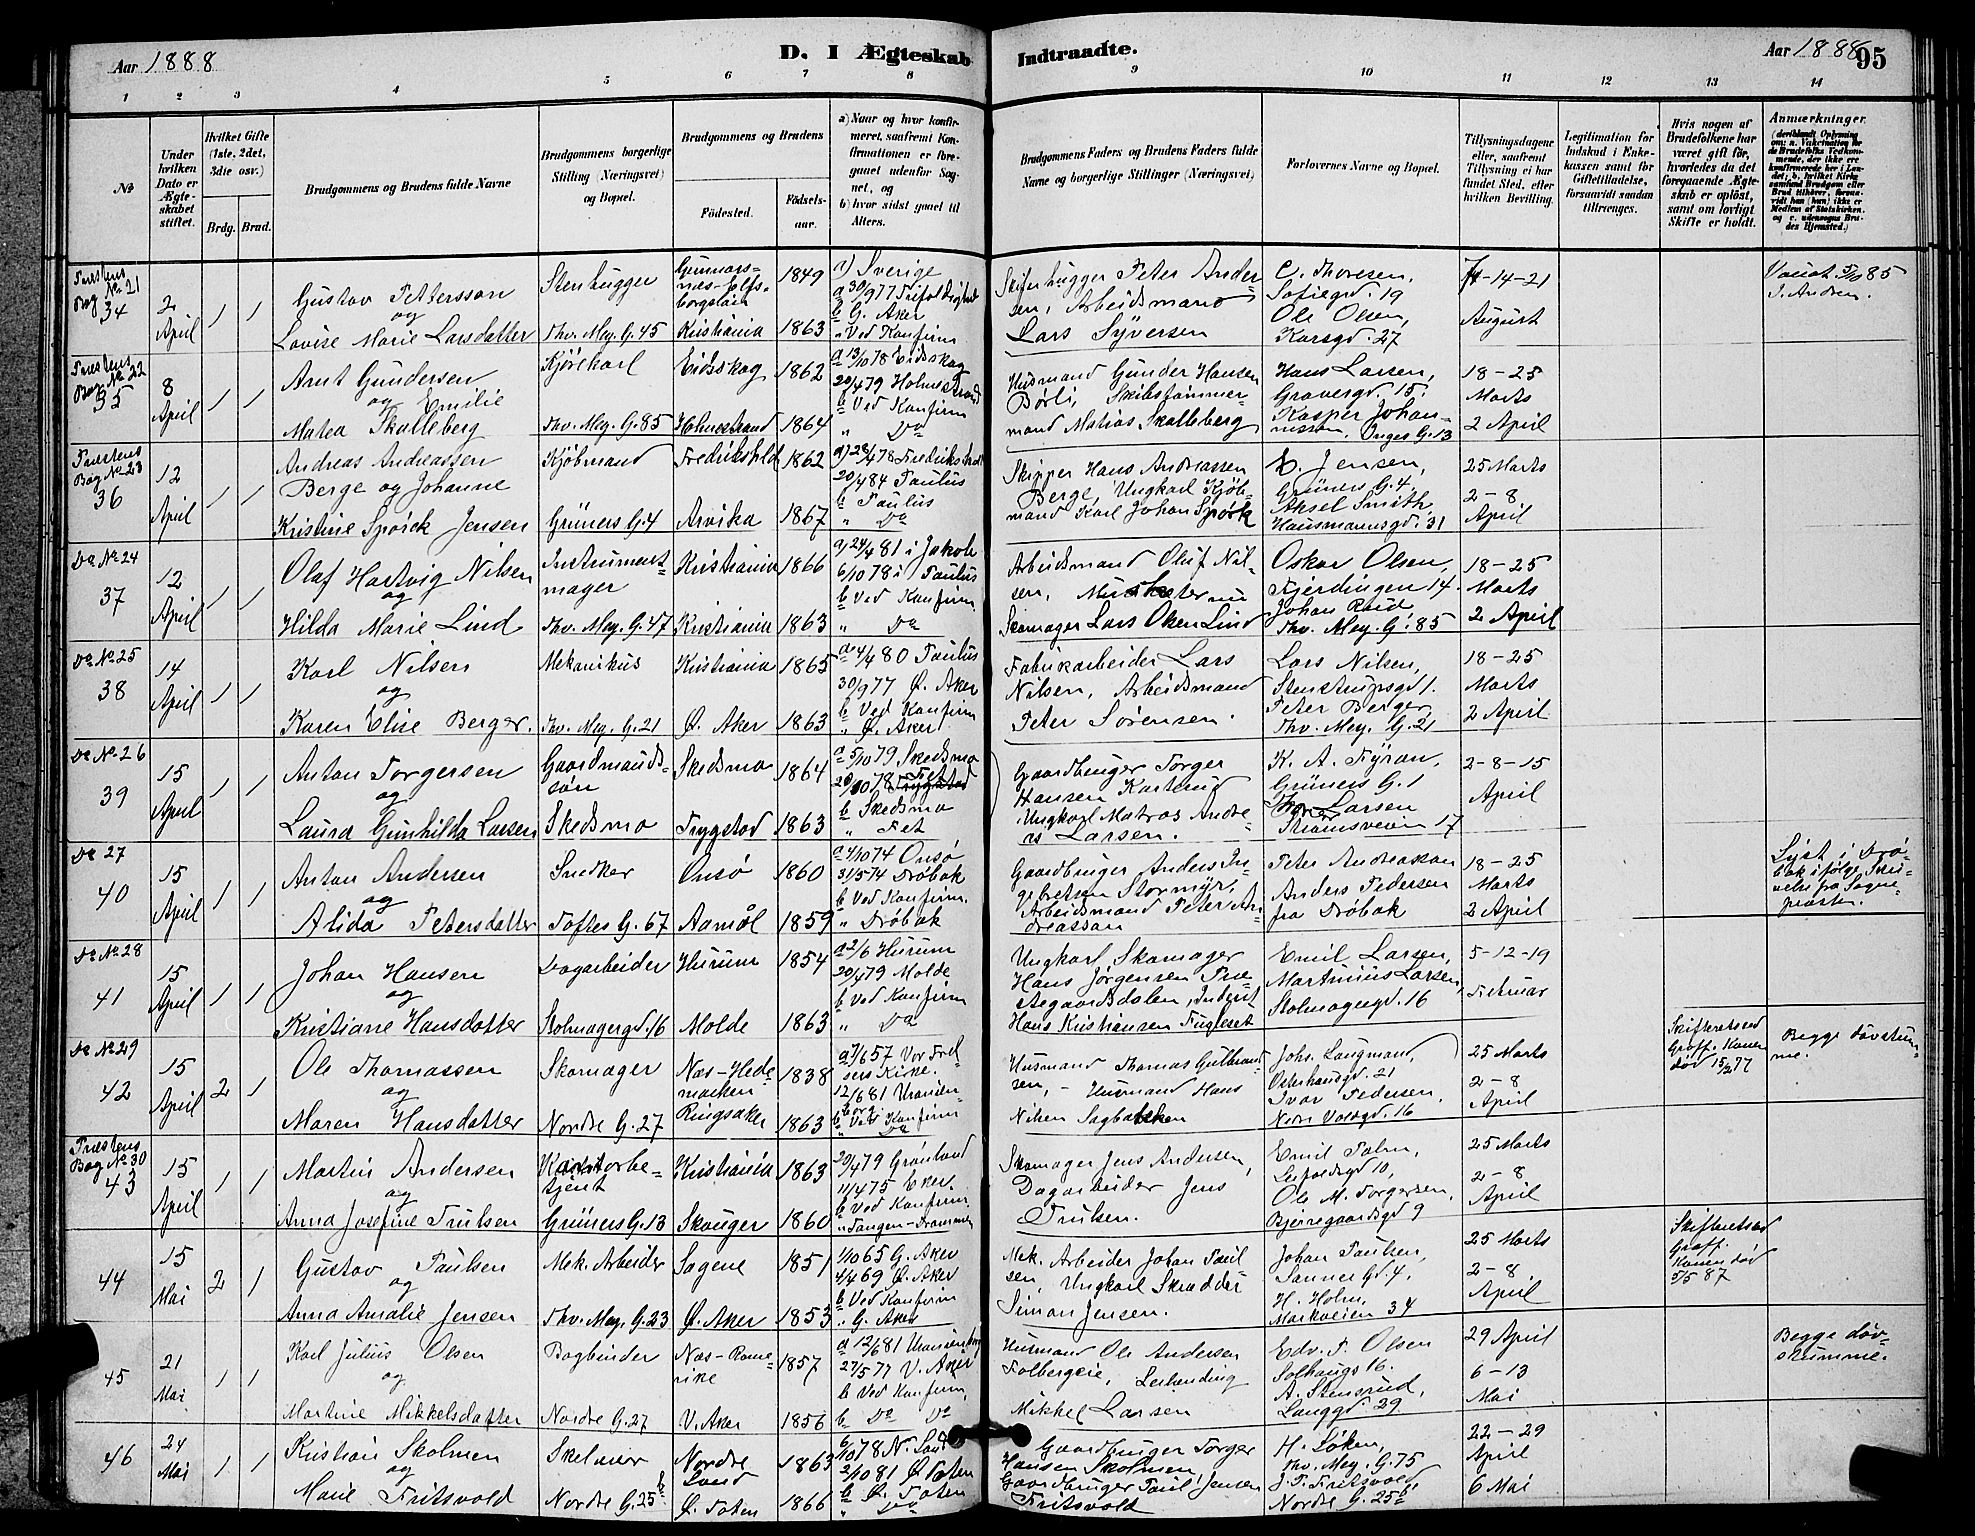 Aar 1888
D. I Ægteskab Indtraadte.
Aar 1888 95
1 2 3 4 5 6 7 8 9 10 11 12 13 14
No
Under hvilken Dato er Ægteskabet stiftet.
Hvilket Gifte (1ste, 2det, 3die osv.)
Brdg. Brud.
Brudgommens og Brudens fulde Navne
Brudgommens borgerlige Stilling (Næringsvei) og Bopæl.
Brudgommens og Brudens
Fødested.
Fødsels-aar.
a) Naar og hvor konfirmeret, saafremt Konfirmationen er foregaaet udenfor Sognet, og
b) hvor sidst gaaet til Alters.
Brudgommens Faders og Brudens Faders fulde Navne og borgerlige Stillinger (Næringsvei)
Forlovernes Navne og Bopæl.
Tillysningsdagene eller, saafremt Tillysning ei har fundet Sted, efter hvilken Bevilling.
Legitimation for Indskud i Enkekassen samt for Giftetilladelse, forsaavidt saadan tiltrænges.
Hvis nogen af Brudefolkene har været gift før, hvorledes da det foregaaende Ægteskab er opløst, samt om lovligt Skifte er holdt.
Anmærkninger.
Præstens Bog No 21
34
2 April
1 1
Gustav Pettersson
og
Lovise Marie Larsdatter
Stenhugger
Thv. Mey. G. 45
Kristiania
1849
1863
a) Sverige
b G. Aker
" Ved Konfirm
Skiferhugger Peter Andersen, Arbeidsmand
Lars Syversen
C. Thoresen,
Sofiegd. 19
Ole Olsen,
Korsgd. 27
7-14-21
August
J. Andren.
Præstens Bog No 22
35
8 April
1 1
Arnt Gundersen
og Emilie
Matea Skalleberg
Kjørekarl
Thv. Mey. G. 85
Eidskog
Holmestrand
1862
1864
a 13/10 78 Eidskog
20/4 79 Holmestrand
b Ved Konfirm
" Do
Husmand Gunder Hansen
Børli, Skibstømmermand Matias Skalleberg
Hans Larsen,
Gravergd. 15.
Kasper Johannessen, Enges G. 13
18-25
Marts
2 April
Præstens Bog No 23
36
12 April
1 1
Andreas Andreassen
Berge og Johanne
Kristine Spörck Jensen
Kjøbmand
Grüners G. 4
Fredrikshald
Arvika
1862
1867
a) 28/4 78 Fredrikshald
20/4 84 Paulus
b Paulus
" Do
Skipper Hans Andreassen
Berge, Ungkarl Kjøbmand Karl Johan Spörk
E. Jensen,
Grüners G. 4,
Aksel Smith,
Hausmannsgd. 31
25 Marts
2-8
April
Do No 24
37
12 April
1 1
Olaf Hartvig Nilsen
og
Hilda Marie Lind
Instrumentmager
Thv. Mey. G. 47
Kristiania
Kristiania
1866
1863
a) 24/4 81 i Jakob
6/10 78 i Paulus
b Ved Konfirm
" Do
Arbeidsmand Oluf Nilsen,
Skomager Lars Olsen Lind
Oskar Olsen,
Fjerdingen 14.
Johan
Thv. Mey. G. 85
18-25
Marts
2 April
Do No 25
38
14 April
1 1
Karl Nilsen
og
Karen Elise Berger.
Mekanikus
Thv. Mey. G. 21
Kristiania
Ø. Aker
1865
1863
a 4/4 80 Paulus
30/9 77 Ø. Aker
b Ved Konfirm
" Ø. Aker
Fabrikarbeider Lars
Nilsen, Arbeidsmand
Peter Sørensen.
Lars Nilsen,
Stenstrupsgd 1.
Peter Berger,
Thv. Mey. G. 21
18-25
Marts
2 April
Do No 26
39
15 April
1 1
Anton Torgersen
og
Laura Gunhilda Larsen
Gaardmandssøn
Skedsmo
Skedsmo
Trygstad
1864
1863
a 5/10 79 Skedsmo
20/10 78 Fet
b Skedsmo
" Fet
Gaardbruger Torger
Hansen Karterud
Ungkarl Matros Andreas Larsen.
K. A. Fyran,
Grüners G. 1
Thor Larsen
Strømsveien 17
2-8-15
April
Do 27
40
15 April
1 1
Anton Andersen
og
Alida Petersdatter
Snedker
Toftes G. 67
Onsø
Aamål
1860
1859
a 4/10 74 Onsø
31/5 74 Drøbak
b Ved Konfirm.
" Drøbak
Gaardbruger Anders Ingebretsen Stormyr,
Arbeidsmand Peter Andreasson
Peter Andreasson
Anders Pedersen
fra Drøbak
18-25
Marts
2 April
Lyst i Drøbak ifølge Skrivelse fra Sognepræsten.
Do No 28
41
15 April
1 1
Johan Hansen
og
Kristiane Hansdatter
Dagarbeider
Stolmagergd. 16
Hurum
Molde
1854
1863
a 2/6 Hurum
20/4 79 Molde
b Ved Konfirm
" Do
Ungkarl Skomager
Hans Jørgensen Præstegaardsdalen, Inderst
Hans Kristiansen Fugleset
Emil Larsen,
Martinius Larsen,
Stolmagergd. 16
5-12-19
Februar
Do No 29
42
15 April
2 1
Ole Thomassen
og
Maren Hansdatter
Skomager
Nordre G. 27
Næs-Hedemarken
Ringsaker
1838
1863
a 7/6 57 Vor Frelsers Kirke.
12/6 81 Uranienborg
b Ved Konfirm
" Do
Husmand Thomas Gulbrandsen, - Husmand Hans
Nilsen Sagbakken
Johs. Langmand,
Osterhausgd. 21
Ivar Pedersen,
Nedre Voldgd. 16
25 Marts
2-8
April
Skifteretsed
Graff. Konen
død 15/2 77
Begge døvstumme.
Præstens Bog No 30
43
15 April
1 1
Martin Andersen
og
Anna Josefine Trulsen
Kontorbetjent
Grüners G. 13
Kristiania
Skouger
1863
1860
20/4 79 Grønland
11/4 75 Eker
b Ved Konfirm
" Tangen-Drammen
Skomager Jens Andersen,
Dagarbeider Jens
Trulsen.
Emil Palm,
Leirfaldsgd 10,
Ole M. Torgersen,
Bjerregaardsgd 9
25 Marts
2-8
April
44
15 Mai
2 1
Gustav Paulsen
og
Anna Amalie Jensen
Mek. Arbeider
Thv. Mey. G. 23
Sagene
Ø. Aker
1851
1853
1/10 65 G. Aker
4/4 69 Ø. Aker
b Ved Konfirm
" G. Aker
Mek. Arbeider Johan Paulsen, Ungkarl Skrædder
Simon Jensen.
Johan Paulsen,
Sanner Gd. 4,
H. Holm,
Markveien 34
25 Marts
2-8
April
Skifteretsed
Graff.
Konen død
5/5 87
45
21 Mai
1 1
Karl Julius Olsen
og
Martine Mikkelsdatter
Bogbinder
Nordre G. 27
Næs-Romerike
V. Aker
1857
1856
a 12/6 81 Uranienborg
27/5 77 V. Aker
b Ved Konfirm,
b Do Do
Husmand Ole Andersen
Folbergeie, Leilending
Mikkel Larsen
Edv. F. Olsen
Solhaugs 16.
A. Stensrud,
Langgd. 29
29 April
6-13
Mai
Begge døvstumme.
46
24 Mai
1 1
Kristian Skolmen
og
Marie Fritsvold
Skelnier
Nordre G. 25 b
Nordre Land
Ø. Toten
1863
1866
6/10 78 N. Land
2/10 81 Ø Toten
b Ø. Toten
" Do
Gaardbruger Torger
Hansen Skolmen
Gaardbruger Paul Jensen
Fritsvold
H. Løken,
Thv. Mey. G. 75
J. P. Fritsvold
Nordre G. 25 b
22-29
April
6 Mai